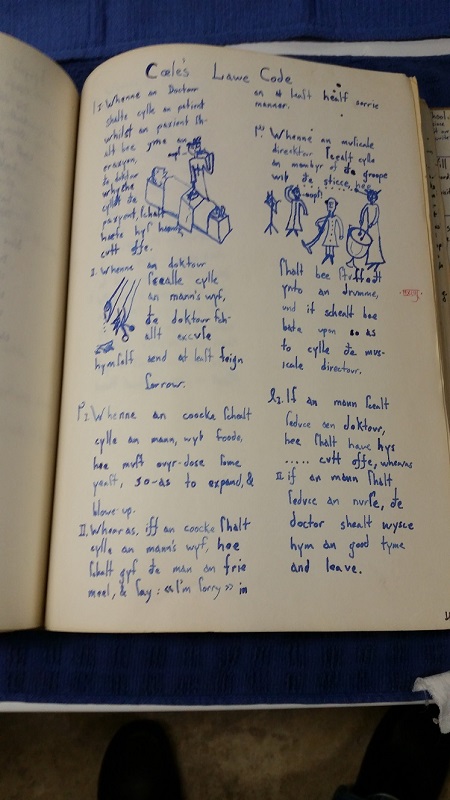 Cœle's Lawe Code
1: Whenne an Doctour
shalte cylle an patient
whilst an pasient sh-
alt bee yne an
operasyon,
de doktor
whenne
cylle de
pasyent, schalt
haete hys hand,
cutt offe.
2. Whenne an doktour
scealle cylle
an mann's wyf,
de doktour sch-
allt excuse
hymself send at least feign
sorrow.
1. Whenne an coocke schealt
cylle an mann, wyb foode,
hee must ovyr-dose some
yeast, so-as to expand, &
blowe up.
II. Wheras, iff an coocke shalt
cylle an mann's wyf, hee
schalt gyf de man an frie
meel, & say: «I'm sorry» in
an at least healf sorrie
manner.
Whenne an musicale
direcktor scealt cylle
an membyr of de groupe
wib de sticce, hee
oops!
shalt bee stuffedt
ynto an drumme,
und it schealt bee
bata upon so as
to cylle de mus-
icale directour.
If an mann scealt
seduce aen doktour,
hee shalt have hys
..... cutt offe, wheras
II. if an mann shalt
seduce an nurse, de
doctor shealt wysce
hym an good tyme
and leave.